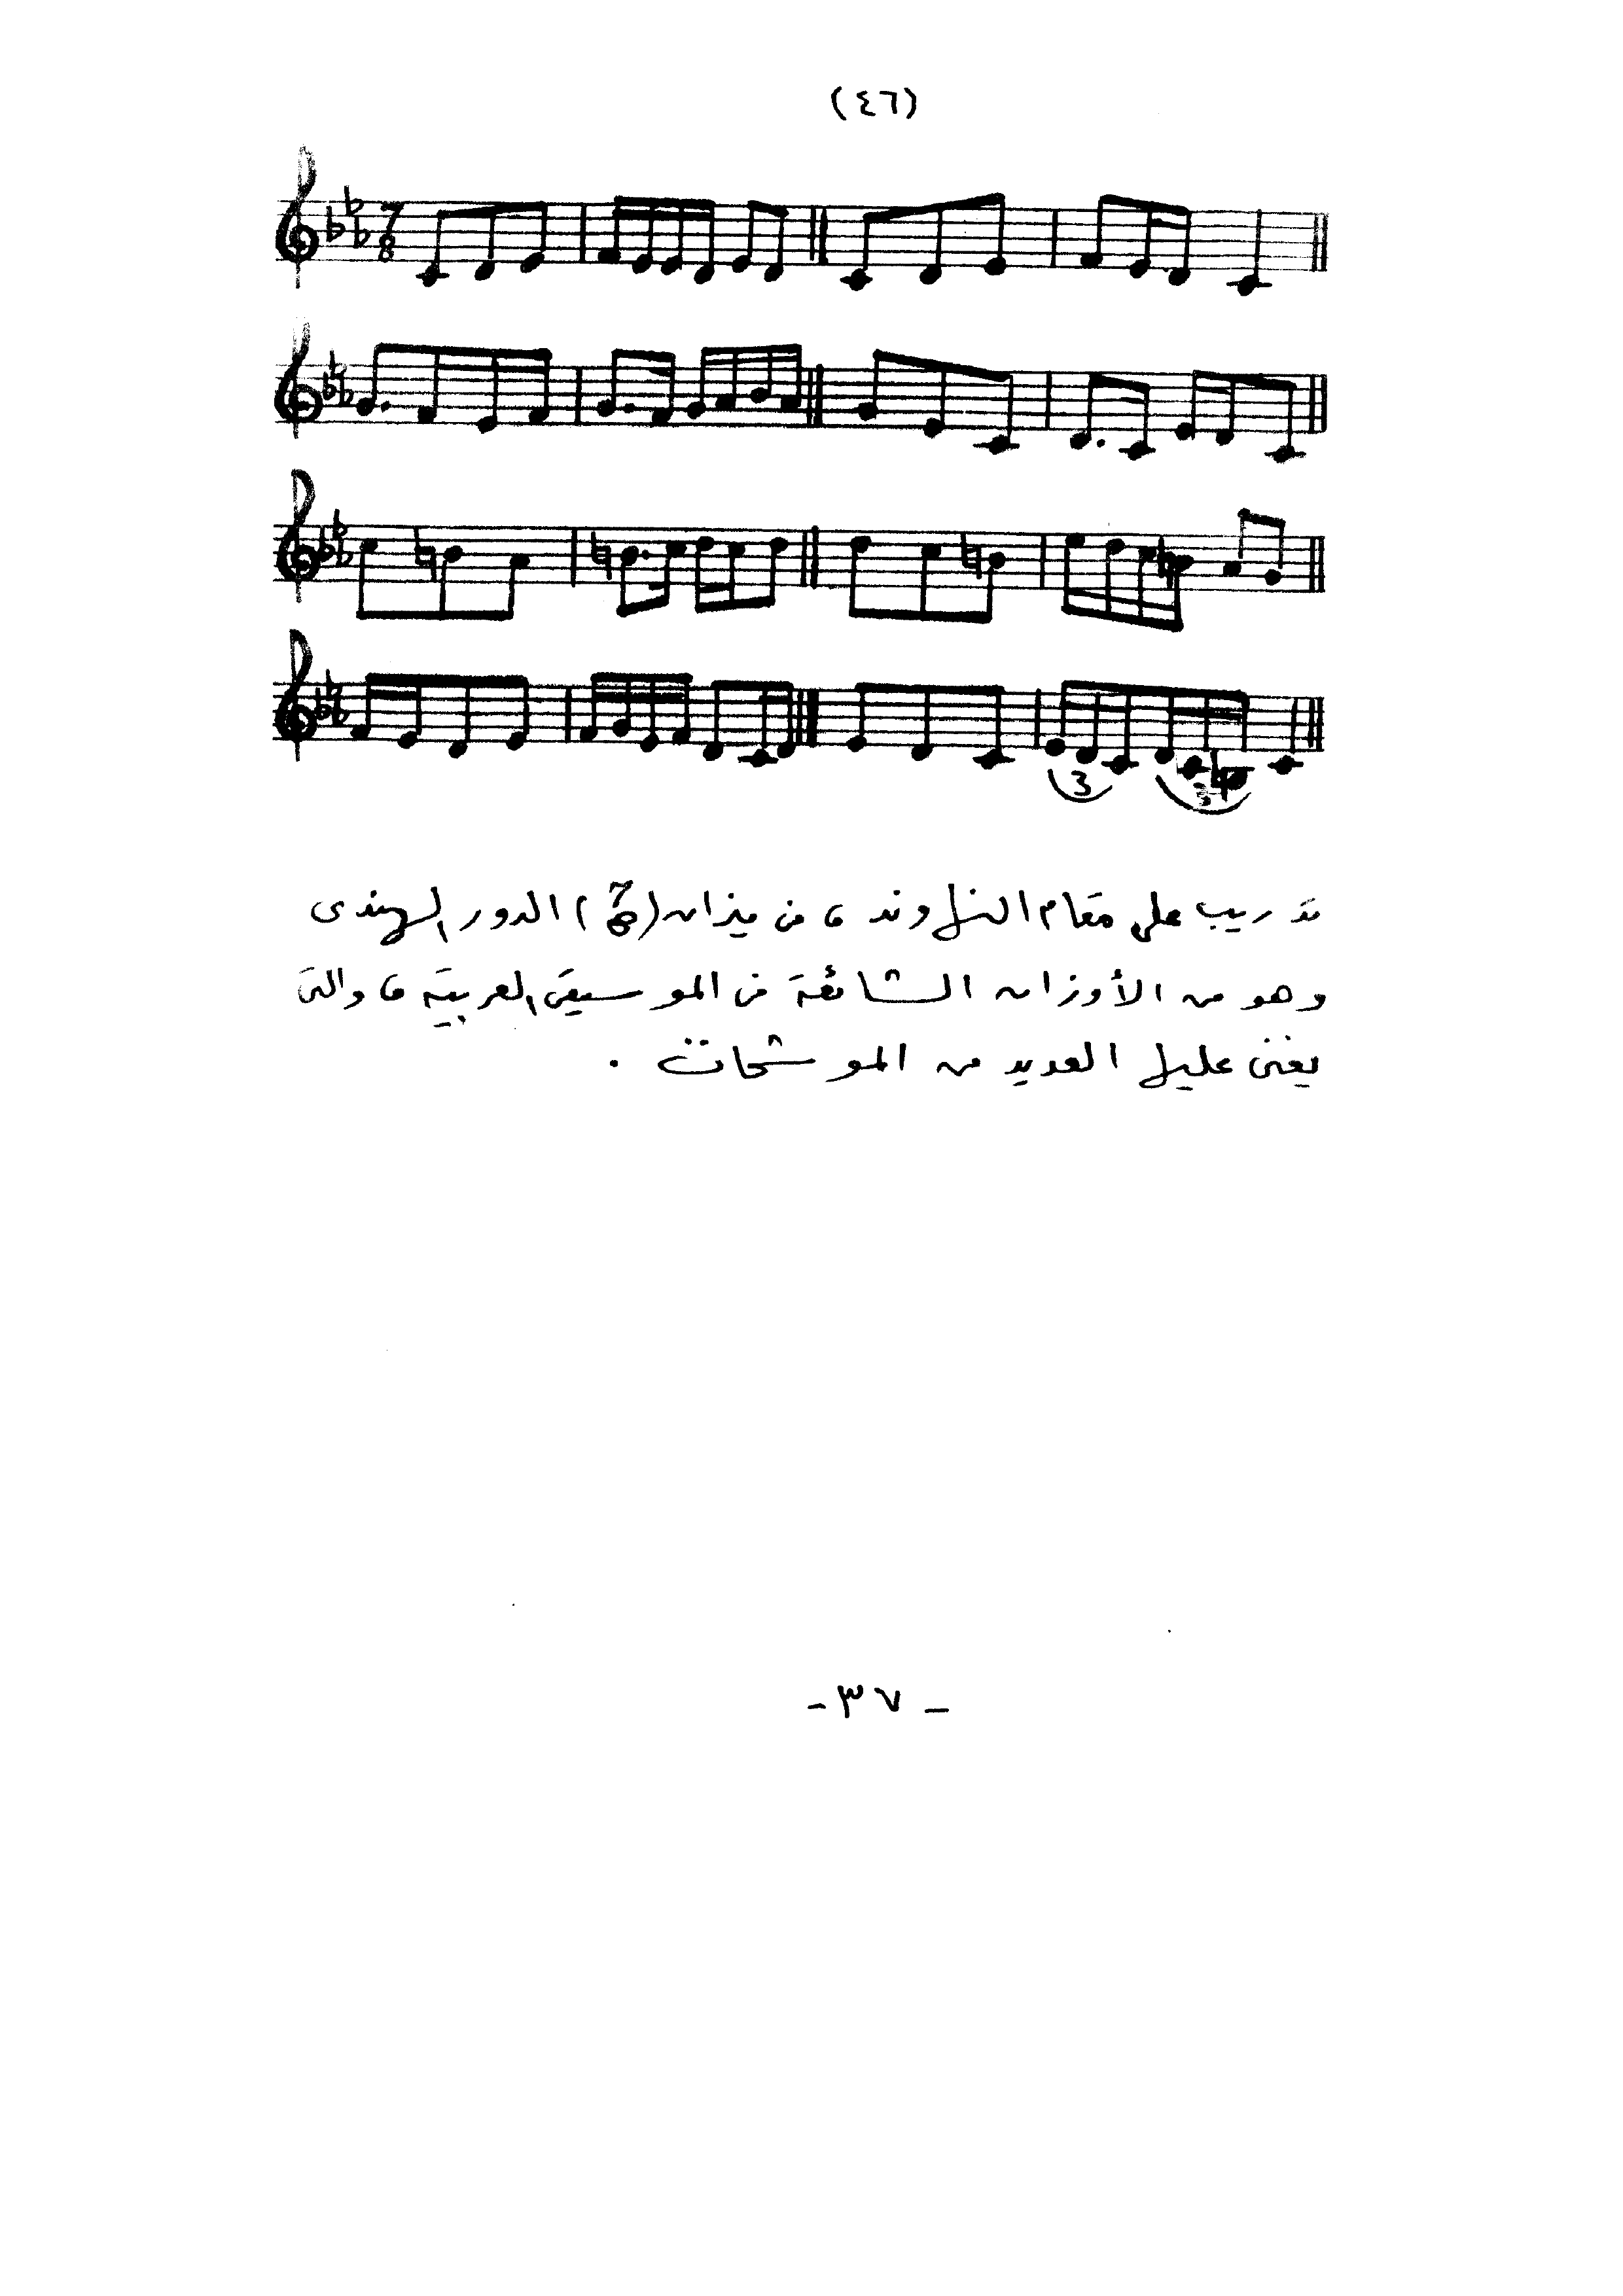 (٤٦)
7
8
3
3
تدريب على مقام النهاوند ، من ميزان (7/8) الدور الهندى
وهو من الأوزان الشائعة فى الموسيقى العربية ، والتى
يغنى عليها العديد من الموشحات .
- ٣٧ -